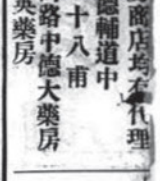 商店均有代理
德輔道中
十八甫
路中德大藥房
英藥房